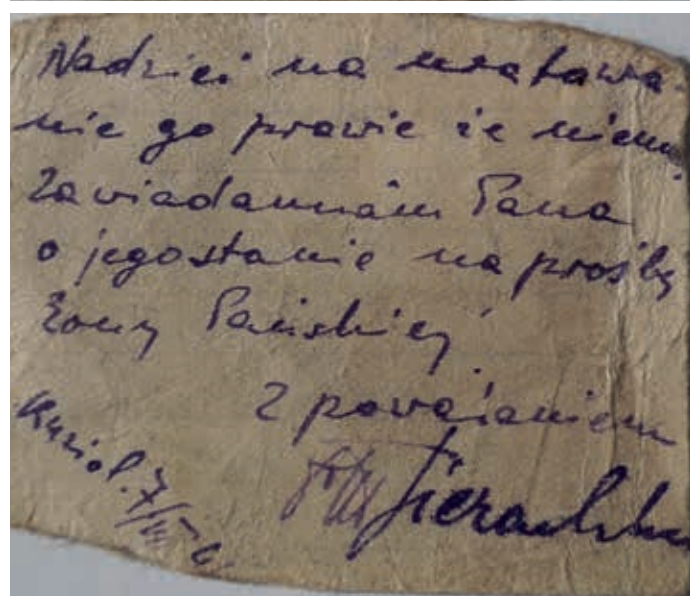 Nadziei na uratowa-
nie go prawie że niema.
Zawiadamiam Pana
o jego stanie na prośbę
Żony Pańskiej
Z poważaniem